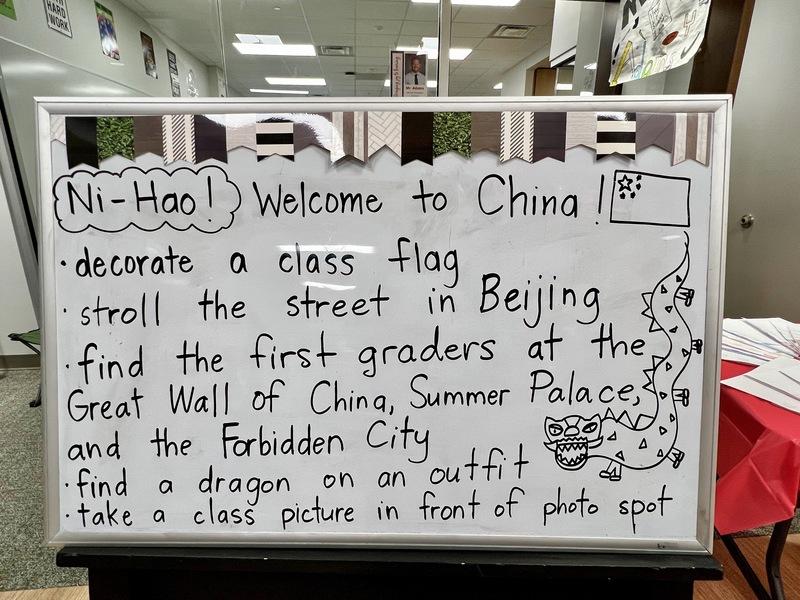 HARD
WORK
Mr Adams
Ni-Hao! Welcome to China!
· decorate a class flag
· stroll the street in Beijing
· find the first graders at the
Great Wall of China, Summer Palace,
and the Forbidden City
· find a dragon on an outfit
· take a class picture in front of photo spot